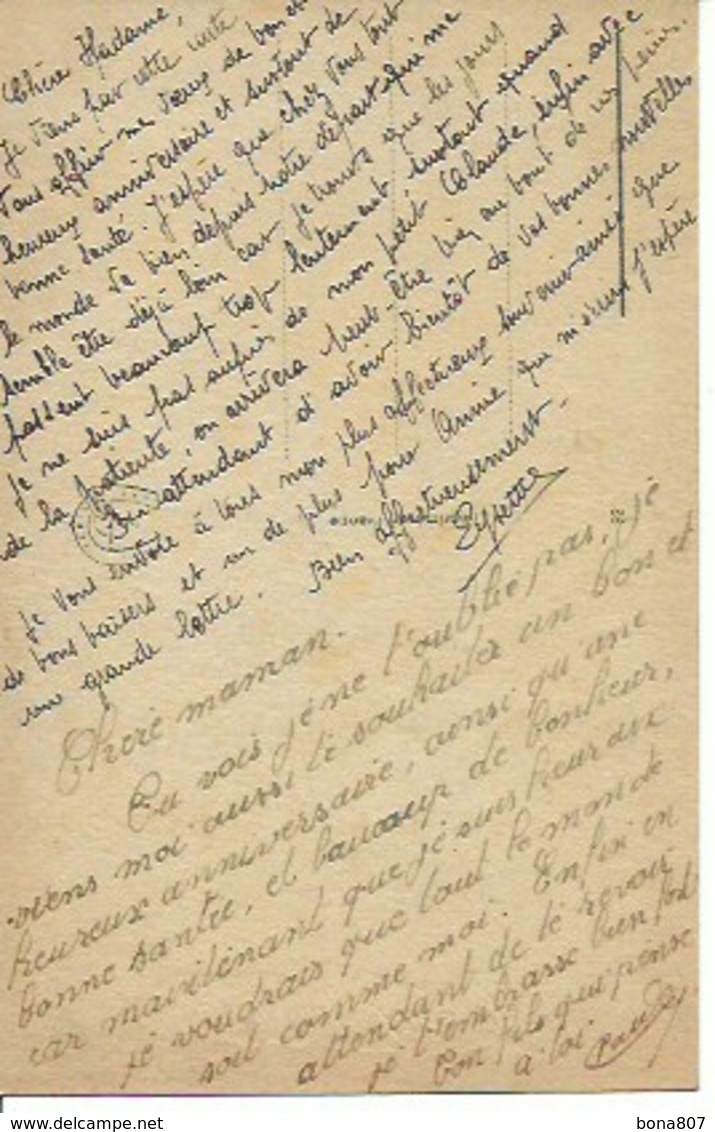 Chère Madame,
Je viens par cette carte
vous offrir mes vœux de bon et
heureux anniversaire et surtout de
bonne santé. J'espère que chez vous tout
le monde va bien depuis notre départ qui me
semble être déjà loin car je trouve que les jours
passent beaucoup trop lentement surtout quand
je ne suis pas auprès de mon petit Claude, enfin avec
de la patiente, on arrivera peut-être bien au bout de nos peines.
En attendant d'avoir bientôt de vos bonnes nouvelles
je vous envoie à tous mon plus affectueux souvenir ainsi que
de bons baisers et un de plus pour Annie que m'écrira j'espère
une grande lettre. Bien affectueusement.
Chère maman.
Tu vois je ne t'oublie pas, je
viens moi aussi te souhaiter un bon et
heureux anniversaire, ainsi qu'une
bonne santée, et baucoup de bonheur,
car maintenant que je suis heureux
je voudrais que tout le monde
soit comme moi. Enfin en
attendant de te revoir
je t'embrasse bien fort
ton fils qui pense
a toi
bona807